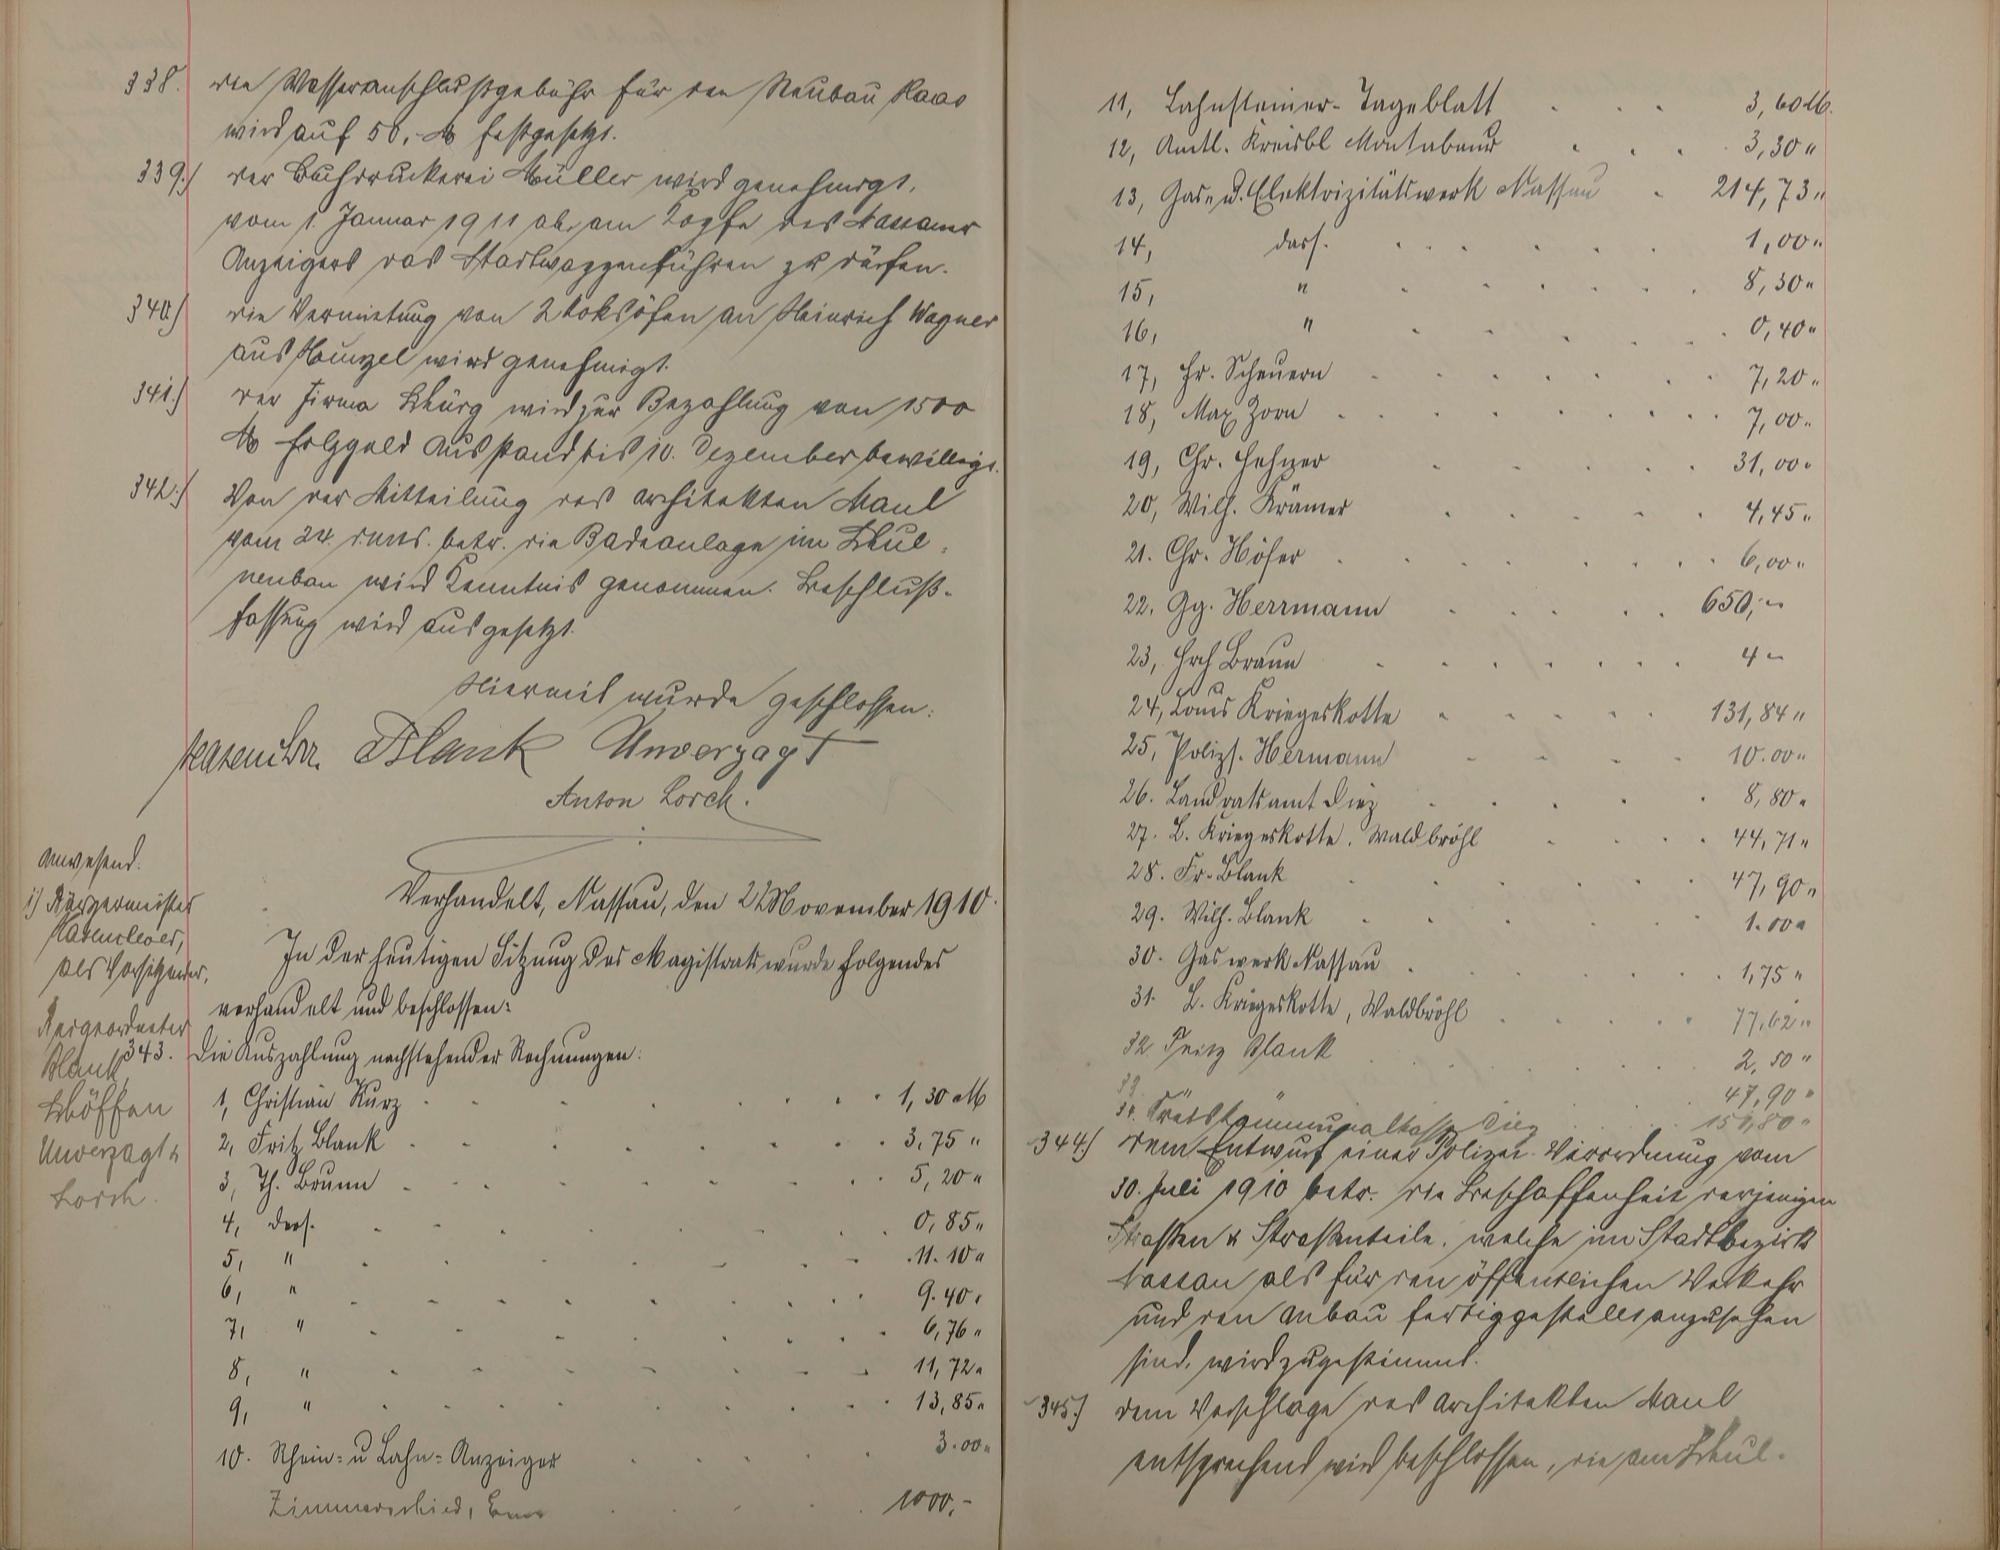 338. Die Wasseranschlußgebühr für den Neubau Kaas
wird auf 50,- M festgesetzt.
339.) Der Buchdruckerei Müller wird genehmigt,
vom 1. Januar 1911 ab, am Kopfe des Nassauer
Anzeigers das Stadtwappen führen zu dürfen.
340.) Die Vermietung von 2 Koksöfen an Heinrich Wagner
aus Hömzel wird genehmigt.
341.) Der Firma wird zur Bezahlung von 1500
M Holzgeld Ausstand bis 10. Dezember bewilligt.
342.) Von der Mitteilung des Architekten Maul
vom 24. d. Mts. betr. die Badeanlage im Schul-
neubau wird Kenntnis genommen. Beschluß-
fassung wird ausgesetzt.
Hiermit wurde geschlossen:
Hasenclever. Blank Unverzagt
Anton Lorch.
Anwesend:
1) Bürgermeister
Hasenclever,
als Vorsitzender,
Beigeordneter
Blank,
Schöffen
Unverzagt &
Lorch.
Verhandelt, Nassau, den 22 November 1910.
In der heutigen Sitzung des Magistrats wurde folgendes
verhandelt und beschlossen:
343. Die Auszahlung nachstehender Rechnungen:
1, Christian Kurz 1,30 M
2, Fritz Blank 3,75 "
3, Th. Brunn 5,20 "
4, ders. 0,85 "
5, " 11.10 "
6, " 9.40 "
7, " 6,76 "
8, " 11,72 "
9, " 13,85 "
10. Rhein- u Lahn-Anzeiger 3.00 "
Zimmerschied, Ems 1000,-
11, Lahnsteiner-Tageblatt 3,60 M.
12, Amtl. Kreisbl Montabaur 3,30 "
13, Gas- u. Elektrizitätswerk Nassau 214,73 "
14, dass. 1,00 "
15, " 8,30 "
16, " 0,40 "
17, Fr. Scheuern 7,20 "
18, Max Zorn 7,00 "
19, Chr. Hehner 31,00 "
20, Wilh. Krämer 4,45 "
21. Chr. Höfer 6,00 "
22. Gg. Herrmann 650,- "
23, Hch Braun 4 - "
24, Louis Kriegeskotte 131,84 "
25, Polizs. Hermann 10.00 "
26. Landratsamt Diez 8,80 "
27. L. Kriegeskotte, Waldbröhl 44,71 "
28. Fr. Blank 47,90 "
29. Wilh. Blank 1.00 "
30. Gaswerk Nassau 1,75 "
31. L. Kriegeskotte, Waldbröhl 77,62 "
32 Fritz Blank 2,50 "
33 " 47,90 "
34. Kreiskommunalkasse Diez "
344.) Dem Entwurf einer Polizei-Verordnung vom
30. Juli 1910 betr. die Beschaffenheit derjenigen
Straßen & Straßenteile, welche im Stadtbezirk
Nassau als für den öffentlichen Verkehr
und den Anbau fertiggestellt anzusehen
sind, wird zugestimmt.
345.) Dem Vorschlage des Architekten Maul
entsprechend wird beschlossen, die am Schul-